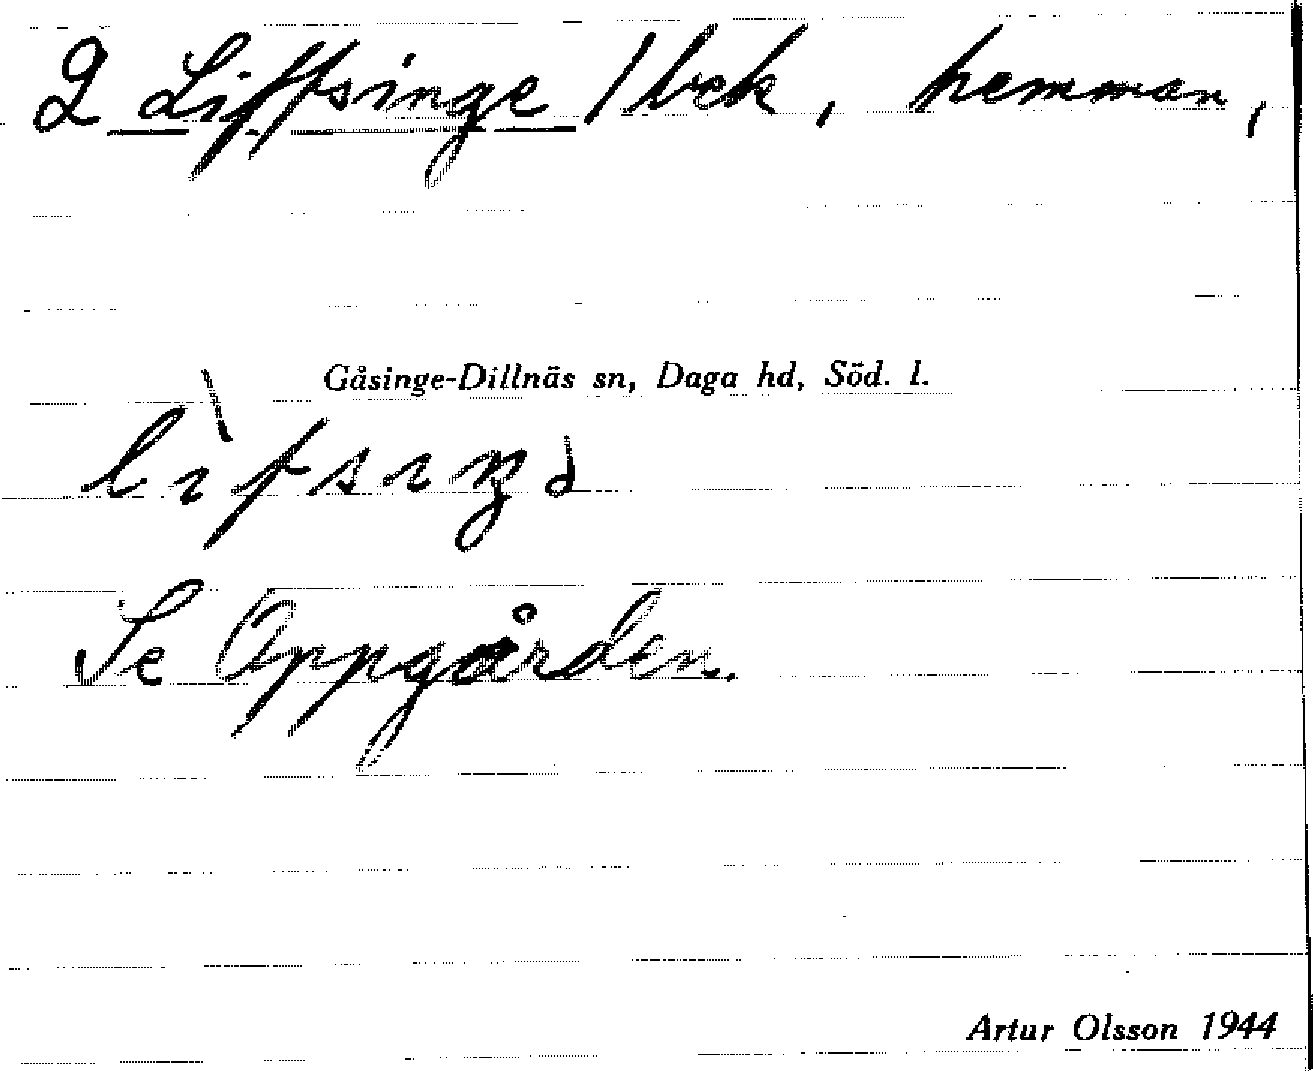 2 Liffsinge /bek, hemman,
Gåsinge-Dillnäs sn, Daga hd, Söd. l.
Se Oppgården.
Artur Olsson 1944